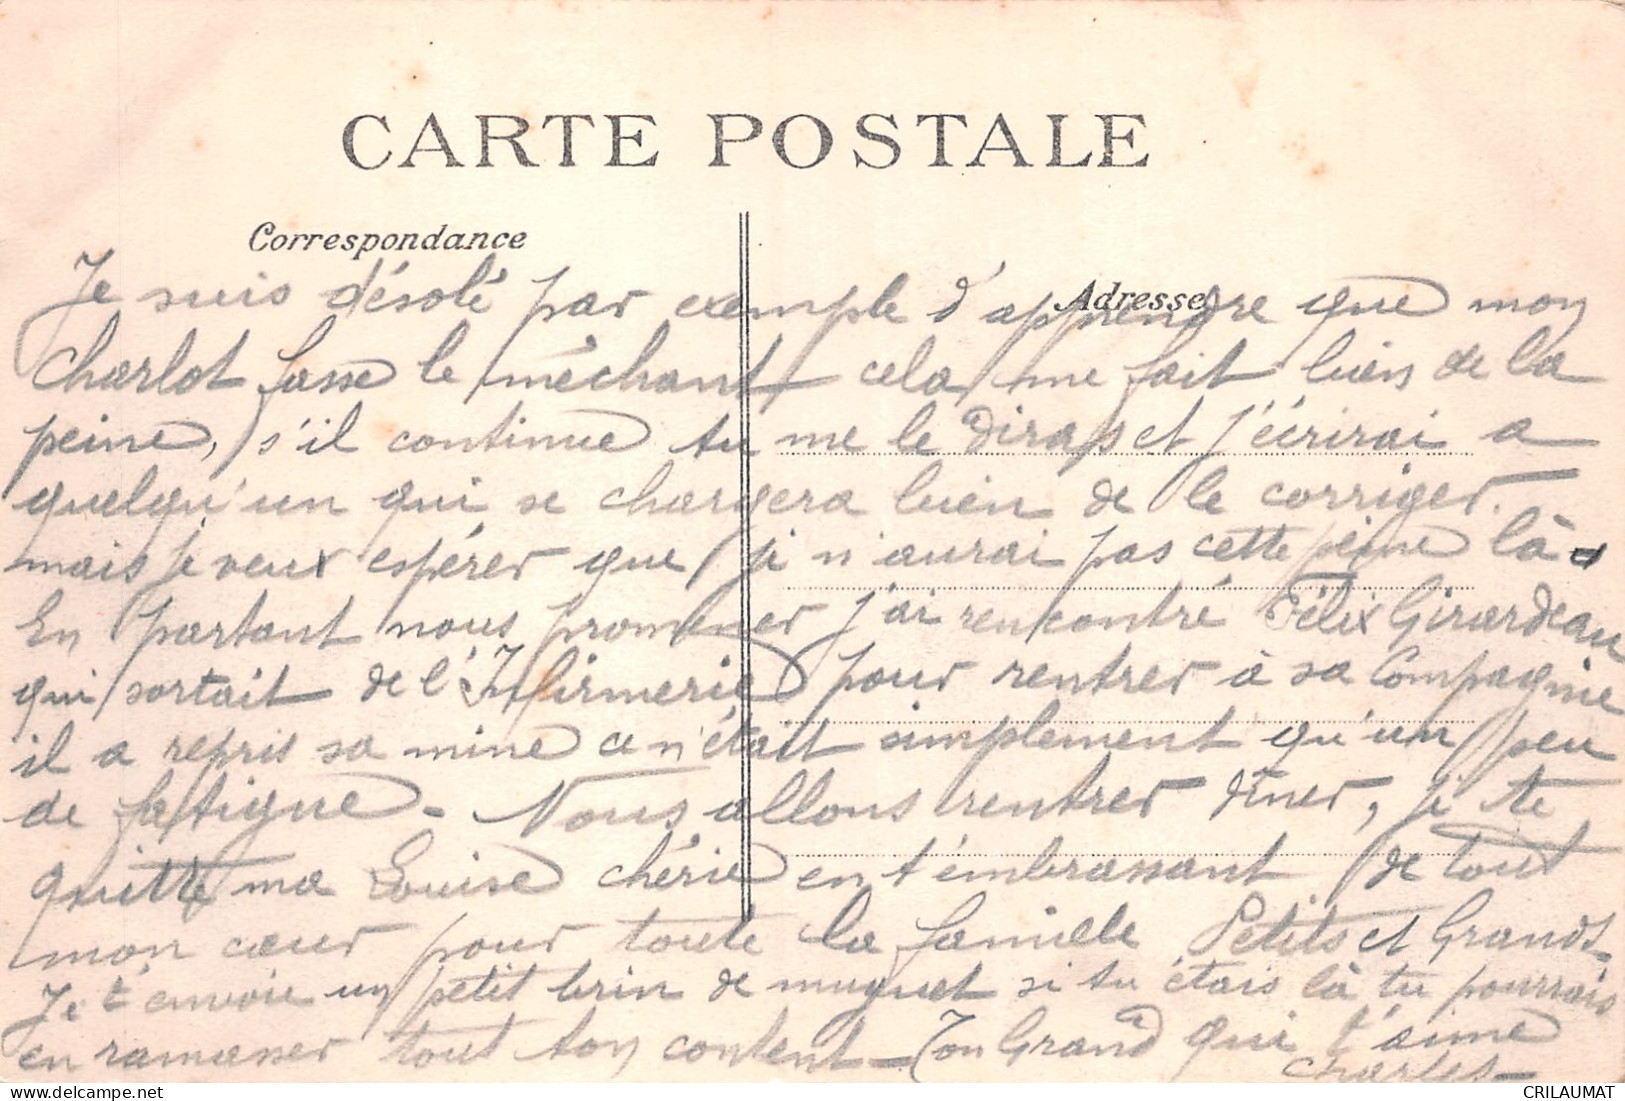 CARTE POSTALE
Correspondance
Adresse
Je suis désolé par exemple d'apprendre que mon
Charlot fasse le méchant cela me fait bien de la
peine, s'il continue tu me le diras et j'écrirai a
quelqu'un qui se chargera bien de le corriger.
mais je veux espérer que je n'aurai pas cette peine là -
En partant nous promener j'ai rencontré Félix Girardeau
qui sortait de l'Infirmerie pour rentrer à sa Compagnie
il a repris sa mine ce n'était simplement qu'un peu
de fatigue - Nous allons rentrer dîner, je te
quitte ma Louise chérie en t'embrassant de tout
mon cœur pour toute la famille Petits et Grands -
Je t'envoie un petit brin de muguet si tu étais là tu pourrais
en ramasser tout ton content - Ton Grand qui t'aime
Charles -
CRILAUMAT